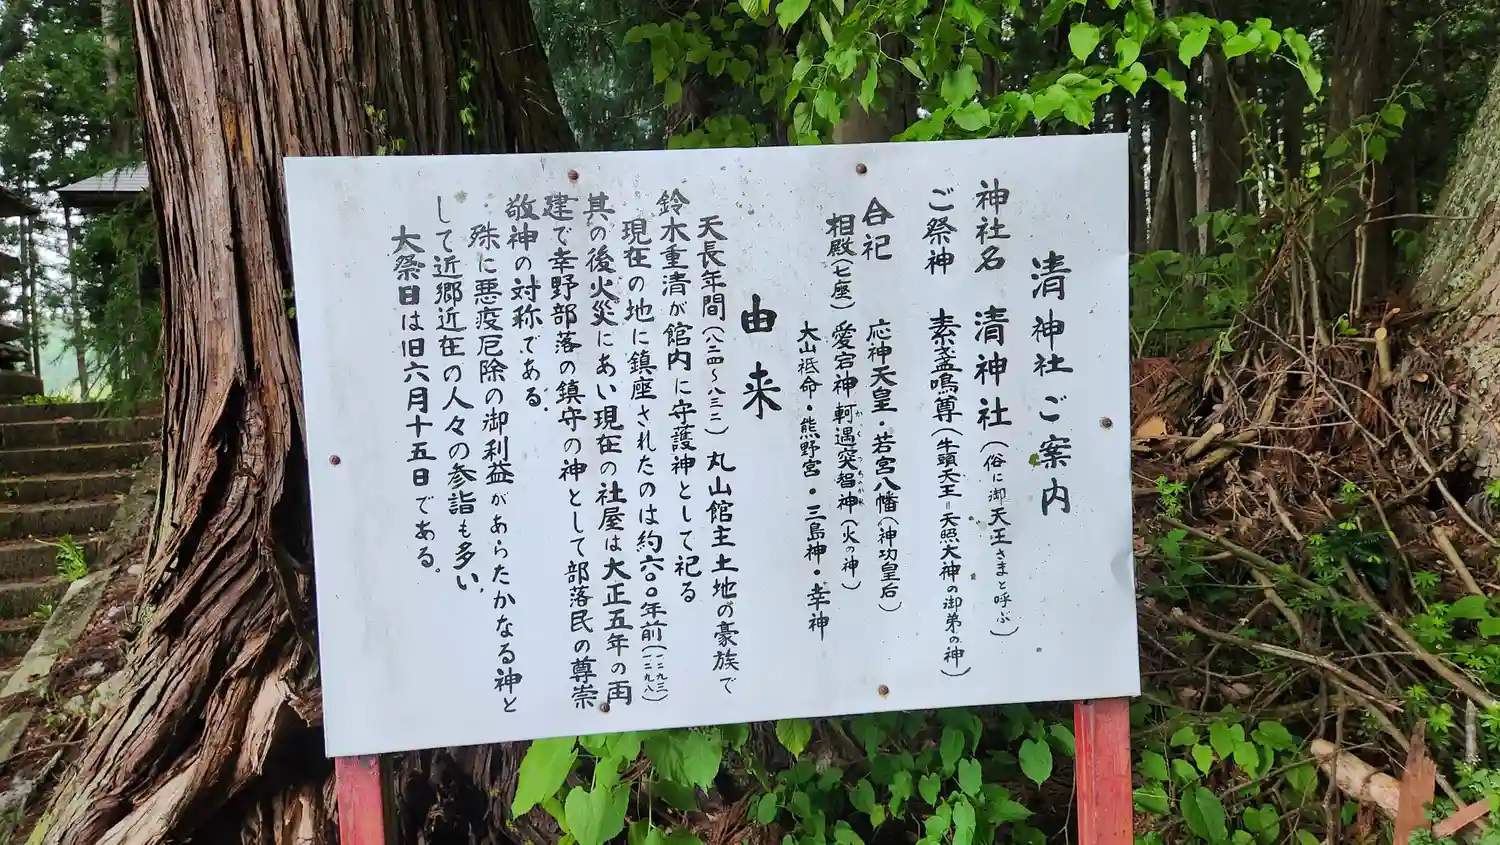 清神社ご案内
神社名 清神社(俗に御天王さまと呼ぶ)
ご祭神 素盞鳴尊(牛頭天王=天照大神の御弟の神)
合祀 応神天皇・若宮八幡(神功皇后)
相殿(七座) 愛宕神 軻遇突智神(火の神)
大山祇命・熊野宮・三島神・幸神
由来
天長年間(八二四〜八三三)丸山館主土地の豪族で
鈴木重清が館内に守護神として祀る
現在の地に鎮座されたのは約六〇〇年前(一二九三〜一二九八)
其の後火災にあい現在の社屋は大正五年の再
建で幸野部落の鎮守の神として部落民の尊崇
敬神の対称である。
殊に悪疫厄除の御利益があらたかなる神と
して近郷近在の人々の参詣も多い。
大祭日は旧六月十五日である。